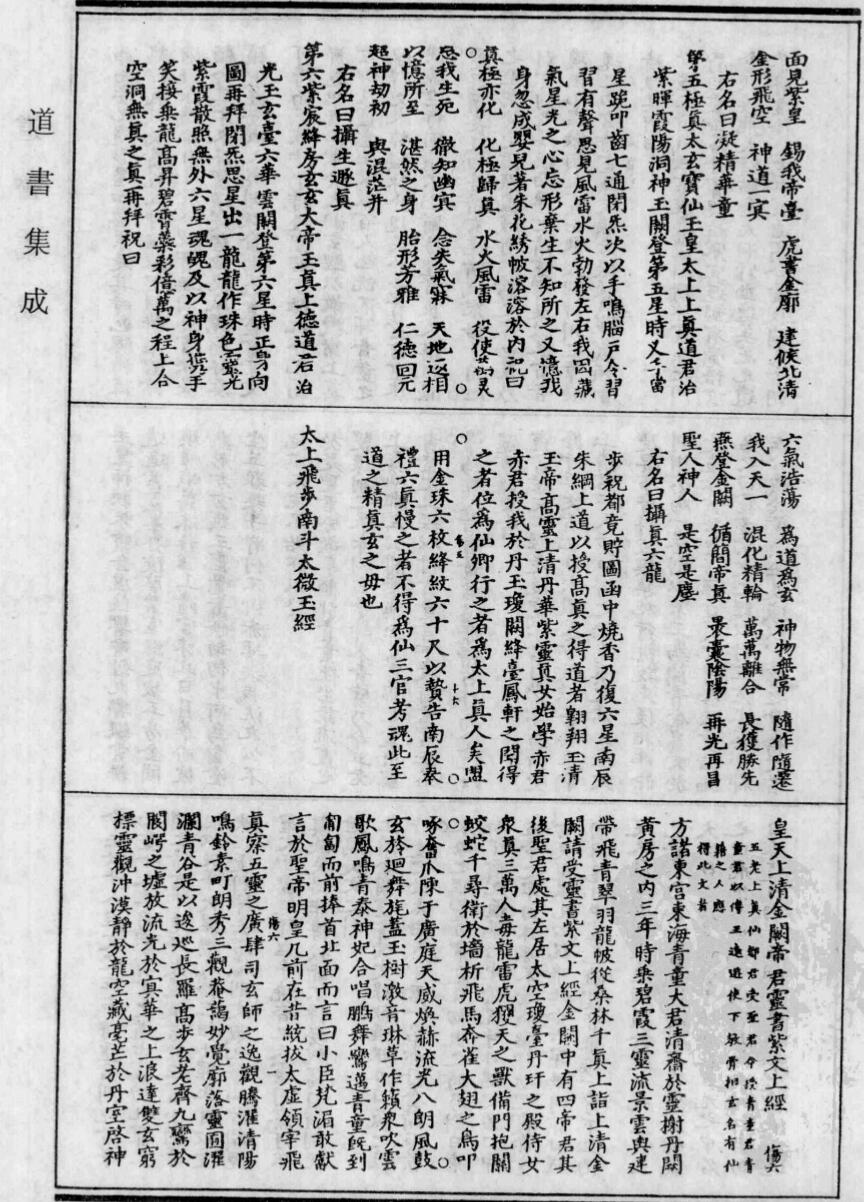 道書集成
面見紫皇　錫我帝臺　虎書金廓　建候北清
金形飛空　神道一寘
右名曰凝精華童
第五極真太玄寶仙王皇太上上真道君治
紫暉霞陽洞神玉闕登第五星時又手當
星跪叩齒七通閉炁次以手鳴腦戶令習
習有聲思見風雷水火勃發左右我因藏
氣星光之心忘形棄生不知所之又憶我
身忽成嬰兒著朱花綉帔溶溶於內祝曰
真極亦化　化極歸真　水火風雷　役使萬灵
忽我生死　微知幽冥　念失氣寐　天地返相
以憶所至　湛然之身　胎形方雅　仁德回元
超神劫初　與混茫并
右名曰攝生遯真
第六紫宸絳房玄玄大帝王真上德道君治
光玉玄臺六華雲闕登第六星時正身向
圖再拜閉炁思星出一龍龍作珠色靈光
紫霞散照無外六星魂魄及以神身携手
笑接乘龍高昇碧霄蘂彩億萬之程上合
空洞無真之真再拜祝曰
六氣浩蕩　為道為玄　神物無常　隨作隨還
我入天一　混化精輪　萬萬離合　長獲勝先
燕登金闕　循閱帝真　罘橐陰陽　再光再昌
聖人神人　是空是塵
右名曰攝真六龍
步祝都竟貯圖函中燒香乃復六星南辰
朱綱上道以授高真之得道者翱翔玉清
王帝高靈上清丹華紫靈真女始學亦君
亦君授我於丹玉瓊闕絳臺鳳軒之閣得
之者位為仙卿行之者為太上真人矣盟
用金珠六枚絳紋六十尺以贄告南辰奉
禮六真慢之者不得為仙三官考魂此至
道之精真玄之毋也
太上飛步南斗太微玉經
皇天上清金闕帝君靈書紫文上經　傷六
五老上真仙都君受聖君令授青童君青
童君以傳王遠遊使下教骨相玄名有仙
籍之人應
得此文者
方諸東宮東海青童大君清齋於靈榭丹闕
黃房之內三年時乘碧霞三靈流景雲輿建
帶飛青翠羽龍帔從桑林千真上詣上清金
闕請受靈書紫文上經金闕中有四帝君其
後聖君處其左居太空瓊臺丹玕之殿侍女
衆真三萬人毒龍雷虎玃天之獸備門抱關
蛟蛇千尋衛於墻析飛馬奔雀大翅之鳥叩
啄奮爪陳于廣庭天威煥赫流光八朗風鼓
玄旍迴舞旄蓋玉樹激音琳草作籟衆吹雲
歌鳳鳴青泰神妃合唱鵬舞鸞邁青童既到
匍匐而前捧首北面而言曰小臣梵湄敢獻
言於聖帝明皇几前在昔統拔太虛領宰飛
真寮五靈之廣肆司玄師之逸觀騰濯清陽
鳴鈴素町朗秀三觀菴藹妙覺廓落靈囿濯
瀾青谷是以逡巡長羅高步玄老齊九鸞於
閬崿之墟放流光於寘華之上浪達雙玄窮
標靈觀沖漠靜於龍空藏毫芒於丹室啓神